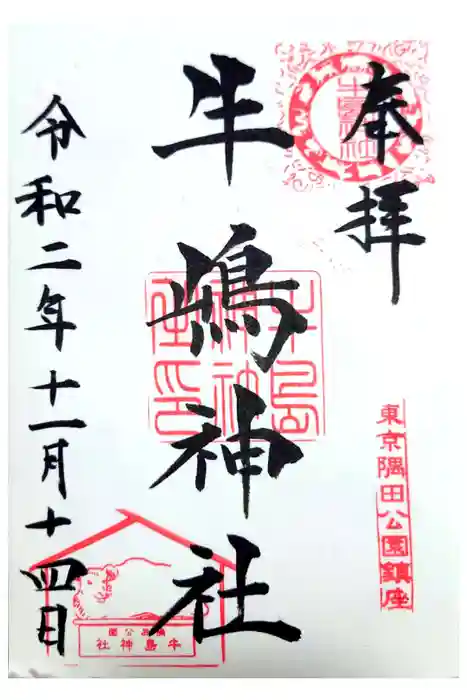 奉拝
東京隅田公園鎮座
牛嶋神社
牛島神社
令和二年十一月十四日
牛島神社